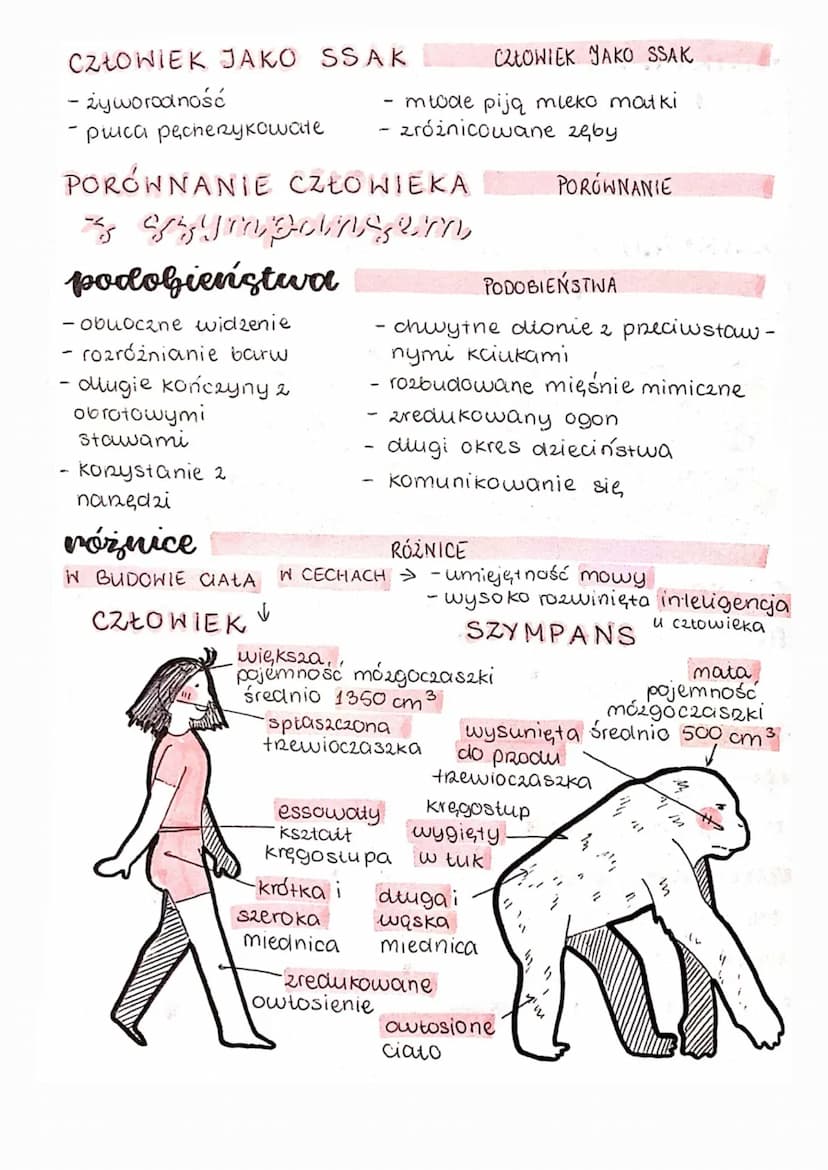 CZŁOWIEK JAKO SSAK
CZŁOWIEK JAKO SSAK
- żyworodność
- płuca pęcherzykowate
- młode piją mleko matki
- zróżnicowane zęby
PORÓWNANIE CZŁOWIEKA
PORÓWNANIE
z szympansem
podobieństwa
PODOBIEŃSTWA
- obuoczne widzenie
- rozróżnianie barw
- długie kończyny z
obrotowymi
stawami
- korzystanie z
narzędzi
- chwytne dłonie z przeciwstaw-
nymi kciukami
- rozbudowane mięśnie mimiczne
- zredukowany ogon
- długi okres dzieciństwa
- komunikowanie się
różnice
RÓŻNICE
W BUDOWIE CIAŁA
W CECHACH → - umiejętność mowy
- wysoko rozwinięta inteligencja
u człowieka
CZŁOWIEK
większa
pojemność mózgoczaszki
średnio 1350 cm³
spłaszczona
trzewioczaszka
essowaty
kształt
kręgosłupa
krótka i
szeroka
miednica
zredukowane
owłosienie
SZYMPANS
mała
pojemność
mózgoczaszki
średnio 500 cm³
wysunięta
do przodu
trzewioczaszka
kręgosłup
wygięty
w łuk
długa i
wąska
miednica
owłosione
ciało